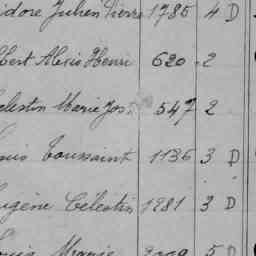 idore Julien Pierre 1785 4 D
bert Alexis Henri 620 2
elestin Marie Jos 547 2
ouis Toussaint 1136 3 D
ugène Célestin 1281 3 D
ouis Marie 5 D